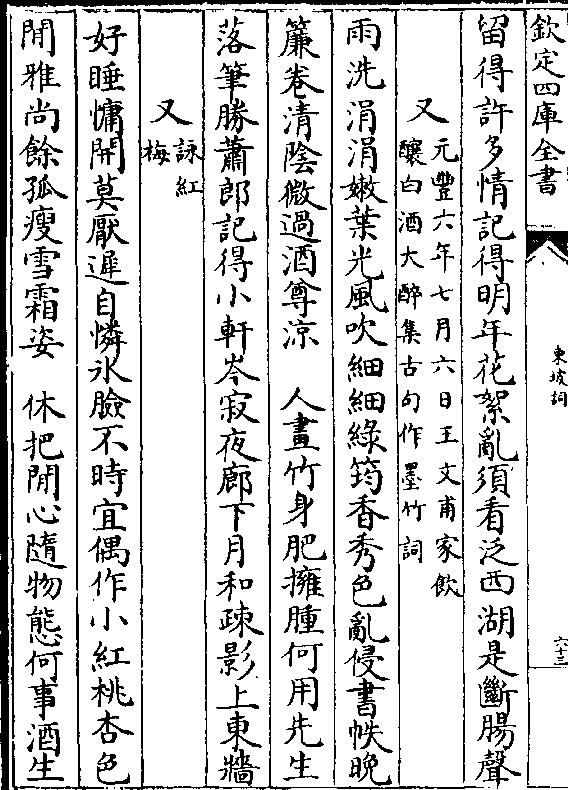 欽定四庫全書
東坡詞
六十三
留得許多情記得明年花絮亂須看泛西湖是斷腸聲
又 元豐六年七月六日王文甫家飲
釀白酒大醉集古句作墨竹詞
雨洗涓涓嫩葉光風吹細細綠筠香秀色亂侵書帙晚
簾卷清陰微過酒尊涼 人畫竹身肥擁腫何用先生
落筆勝蕭郎記得小軒岑寂夜廊下月和疎影上東牆
又 詠紅
梅
好睡慵開莫厭遲自憐冰臉不時宜偶作小紅桃杏色
閒雅尚餘孤瘦雪霜姿 休把閒心隨物態何事酒生